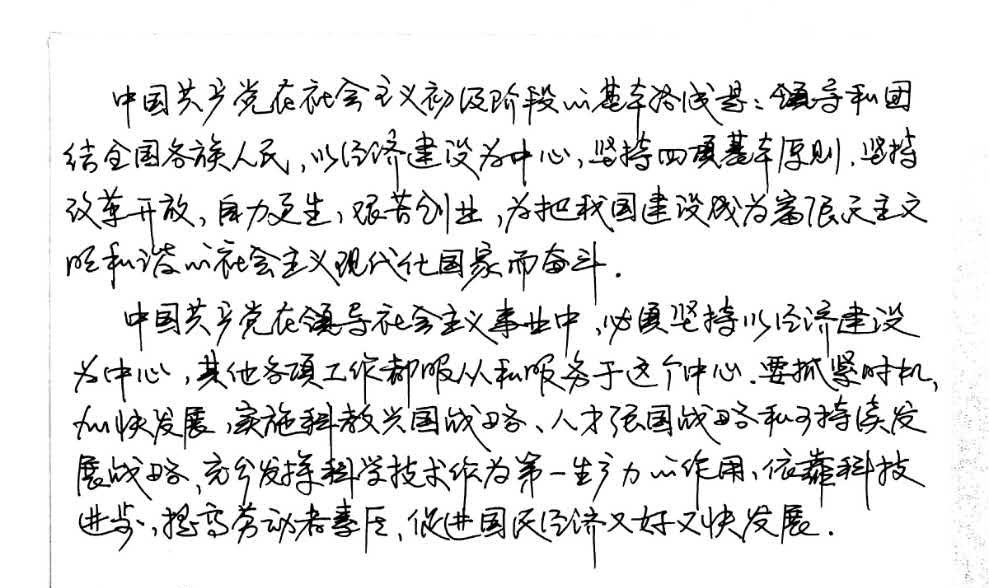 中国共产党在社会主义初级阶段的基本路线是：领导和团
结全国各族人民，以经济建设为中心，坚持四项基本原则，坚持
改革开放，自力更生，艰苦创业，为把我国建设成为富强民主文
明和谐的社会主义现代化国家而奋斗.
中国共产党在领导社会主义事业中，必须坚持以经济建设
为中心，其他各项工作都服从和服务于这个中心.要抓紧时机，
加快发展，实施科教兴国战略、人才强国战略和可持续发
展战略，充分发挥科学技术作为第一生产力的作用，依靠科技
进步，提高劳动者素质，促进国民经济又好又快发展.